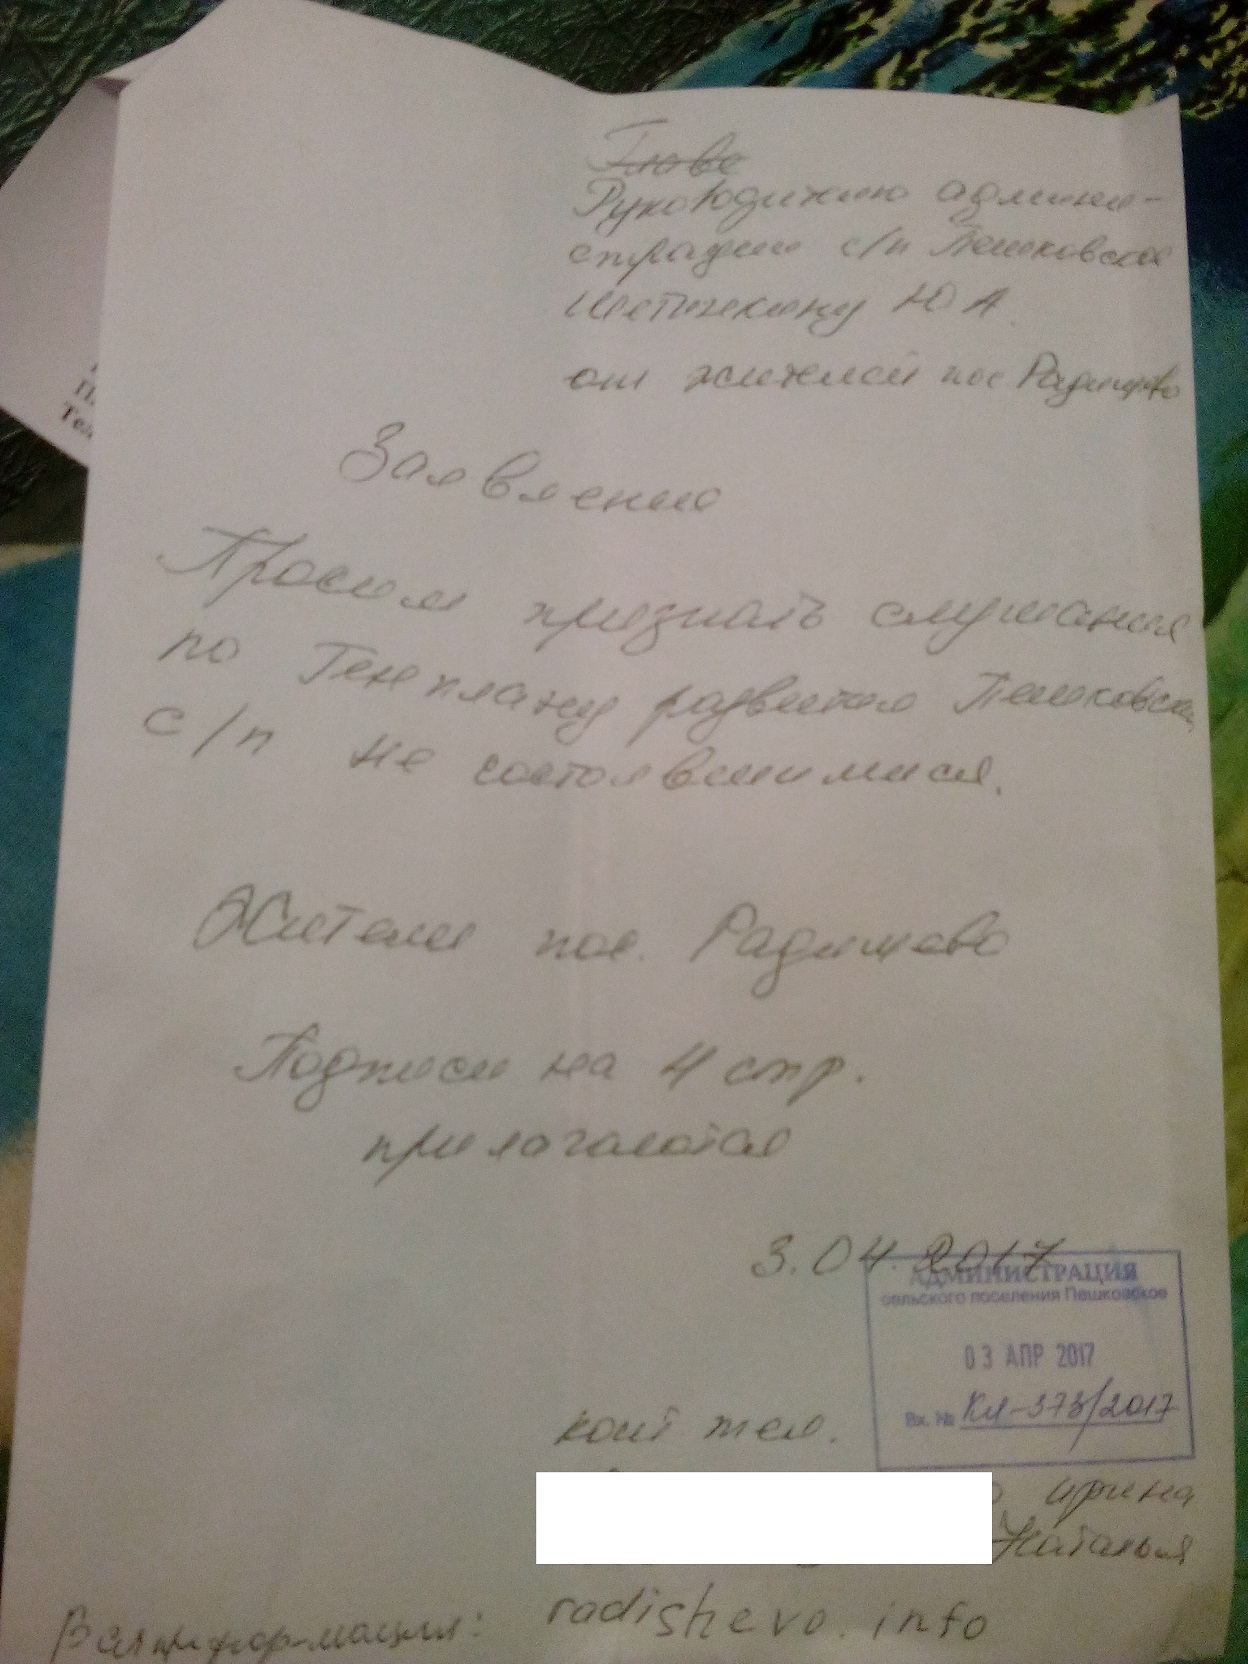 Главе
Руководителю админи-
страции с/п Пешковское
Шетинкину Ю А.
от жителей пос Радищево
Заявление
Просим признать слушания
по Генплану развития Пешковское
с/п не состоявшимися.
Жители пос. Радищево
Подписи на 4 стр.
прилагаются
3.04.2017
АДМИНИСТРАЦИЯ
сельского поселения Пешковское
03 АПР 2017
Вх. № Кл-373/2017
конт тел.
Ирина
Наталья
Вся информация: radishevo.info
П
Тел